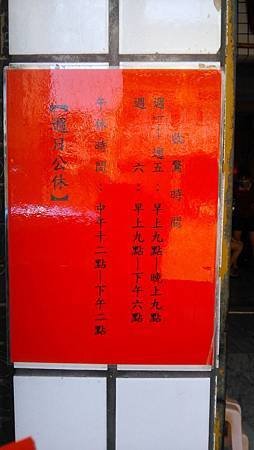 收驚時間
週一—週五：早上九點—晚上九點
週　六：早上九點—下午六點
午休時間：中午十二點—下午二點
【週日公休】